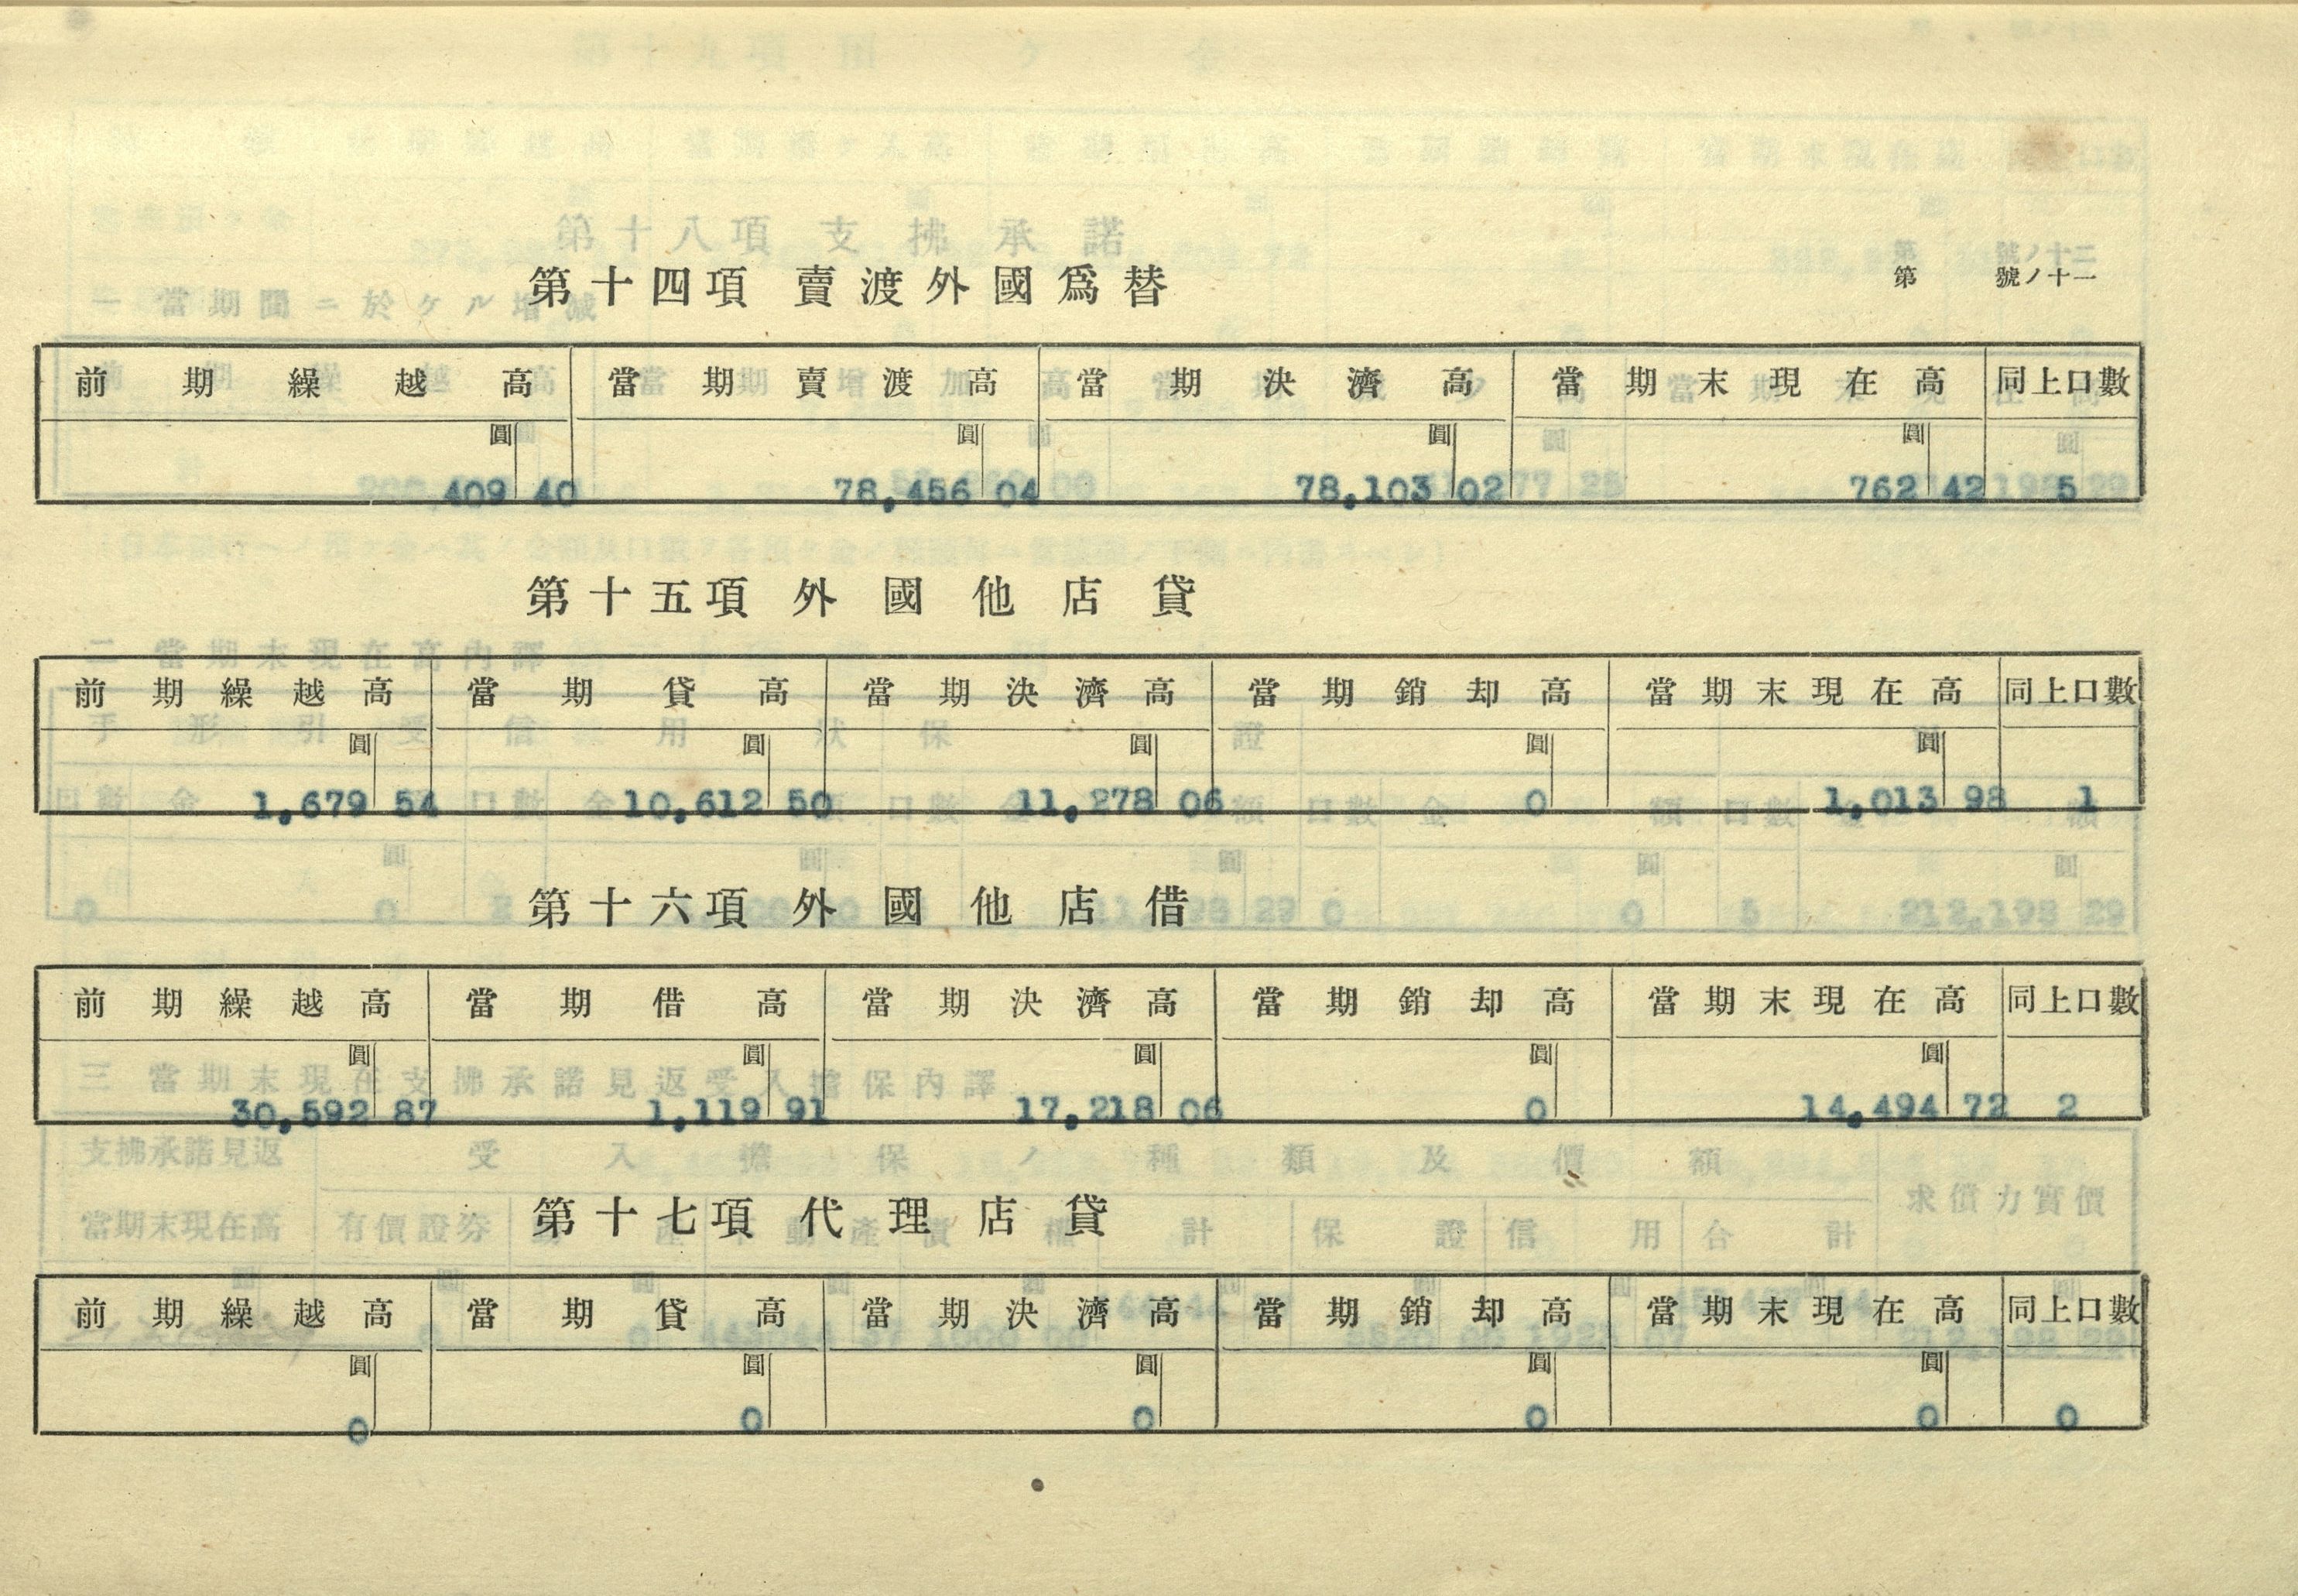 第十四項 賣渡外國爲替
第 號ノ十一
前期繰越高 當期賣渡高 當期決濟高 當期末現在高 同上口數
圓 圓 圓 圓
409 40 78,456 04 78,103 02 762 42 5
第十五項 外國他店貸
前期繰越高 當期貸高 當期決濟高 當期銷却高 當期末現在高 同上口數
圓 圓 圓 圓 圓
1,679 54 10,612 50 11,278 06 0 1,013 98 1
第十六項 外國他店借
前期繰越高 當期借高 當期決濟高 當期銷却高 當期末現在高 同上口數
圓 圓 圓 圓 圓
30,592 87 1,119 91 17,218 06 0 14,494 72 2
第十七項 代理店貸
前期繰越高 當期貸高 當期決濟高 當期銷却高 當期末現在高 同上口數
圓 圓 圓 圓 圓
0 0 0 0 0 0